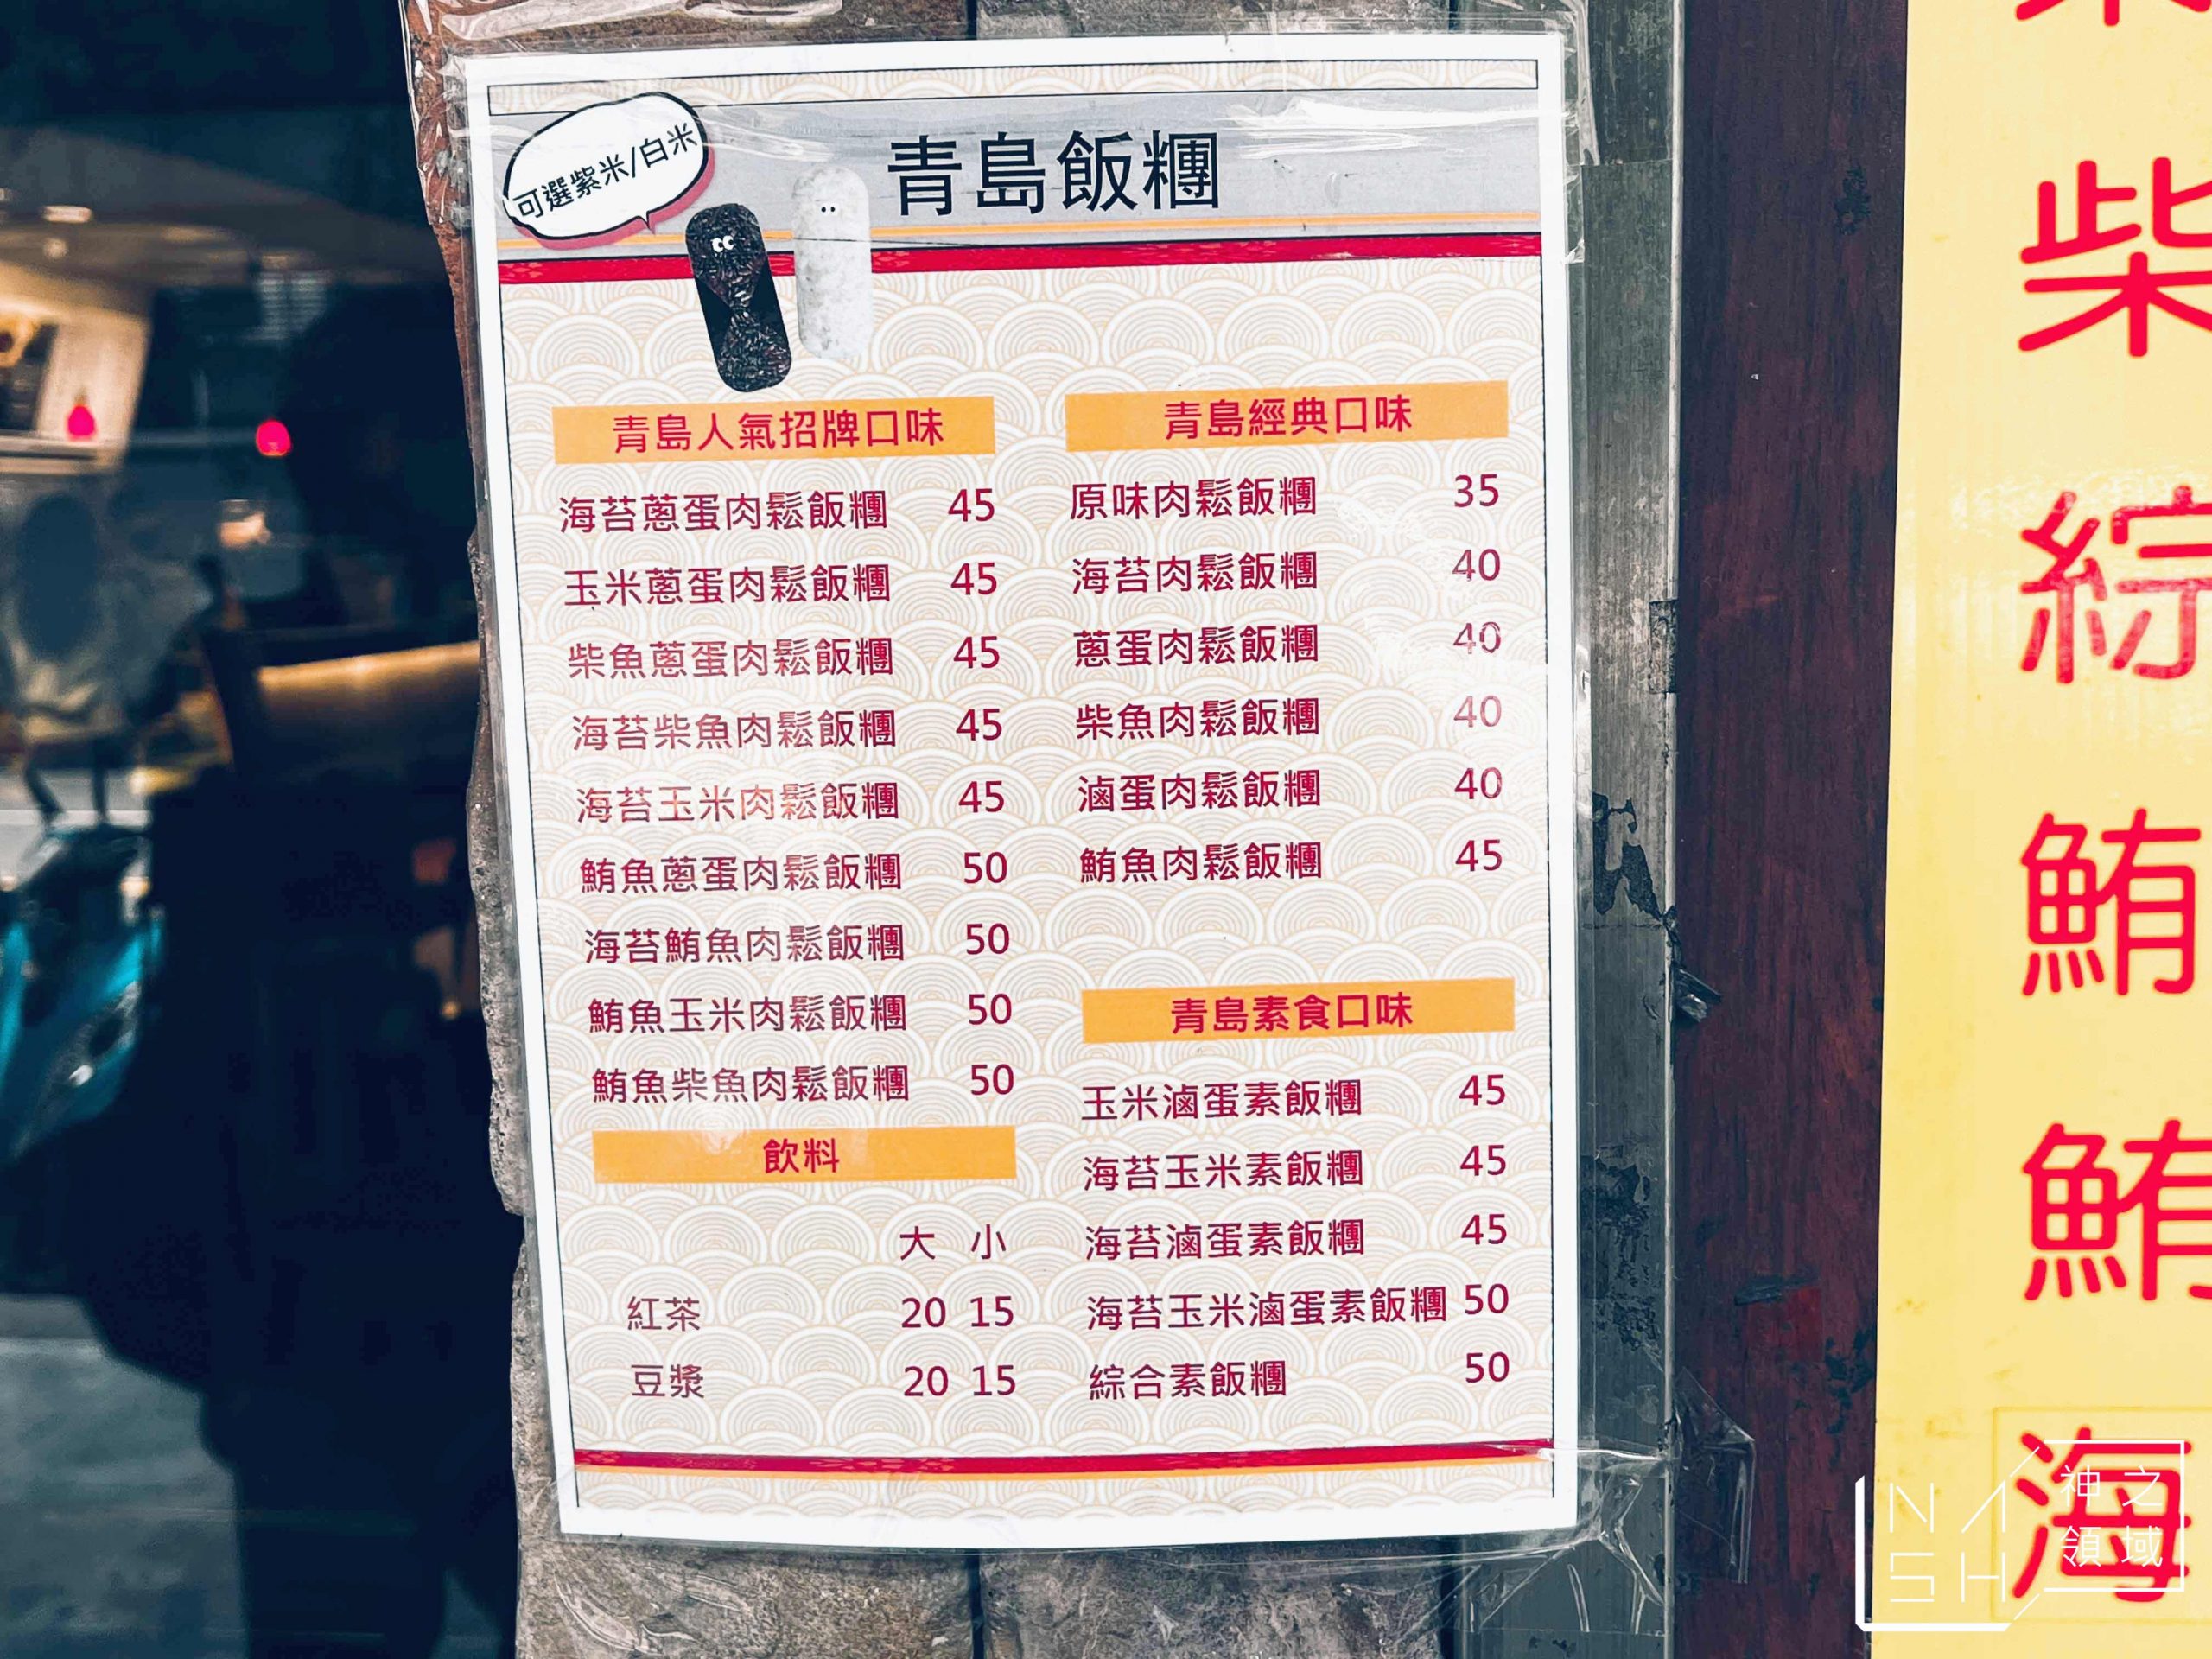 可選紫米/白米
青島飯糰
青島人氣招牌口味
海苔蔥蛋肉鬆飯糰 45
玉米蔥蛋肉鬆飯糰 45
柴魚蔥蛋肉鬆飯糰 45
海苔柴魚肉鬆飯糰 45
海苔玉米肉鬆飯糰 45
鮪魚蔥蛋肉鬆飯糰 50
海苔鮪魚肉鬆飯糰 50
鮪魚玉米肉鬆飯糰 50
鮪魚柴魚肉鬆飯糰 50
飲料
大 小
紅茶 20 15
豆漿 20 15
青島經典口味
原味肉鬆飯糰 35
海苔肉鬆飯糰 40
蔥蛋肉鬆飯糰 40
柴魚肉鬆飯糰 40
滷蛋肉鬆飯糰 40
鮪魚肉鬆飯糰 45
青島素食口味
玉米滷蛋素飯糰 45
海苔玉米素飯糰 45
海苔滷蛋素飯糰 45
海苔玉米滷蛋素飯糰 50
綜合素飯糰 50
柴
綜
鮪
鮪
海
NASH
神之
領域